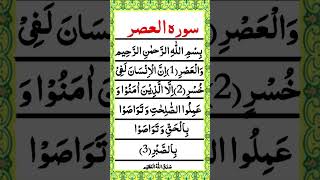 سورة العصر
بِسْمِ اللّٰهِ الرَّحْمٰنِ الرَّحِيْمِ
وَالْعَصْرِ (1) اِنَّ الْاِنْسَانَ لَفِیْ
خُسْرٍ (2) اِلَّا الَّذِيْنَ اٰمَنُوْا وَ
عَمِلُوا الصّٰلِحٰتِ وَ تَوَاصَوْا
بِالْحَقِّ وَ تَوَاصَوْا
بِالصَّبْرِ (3)